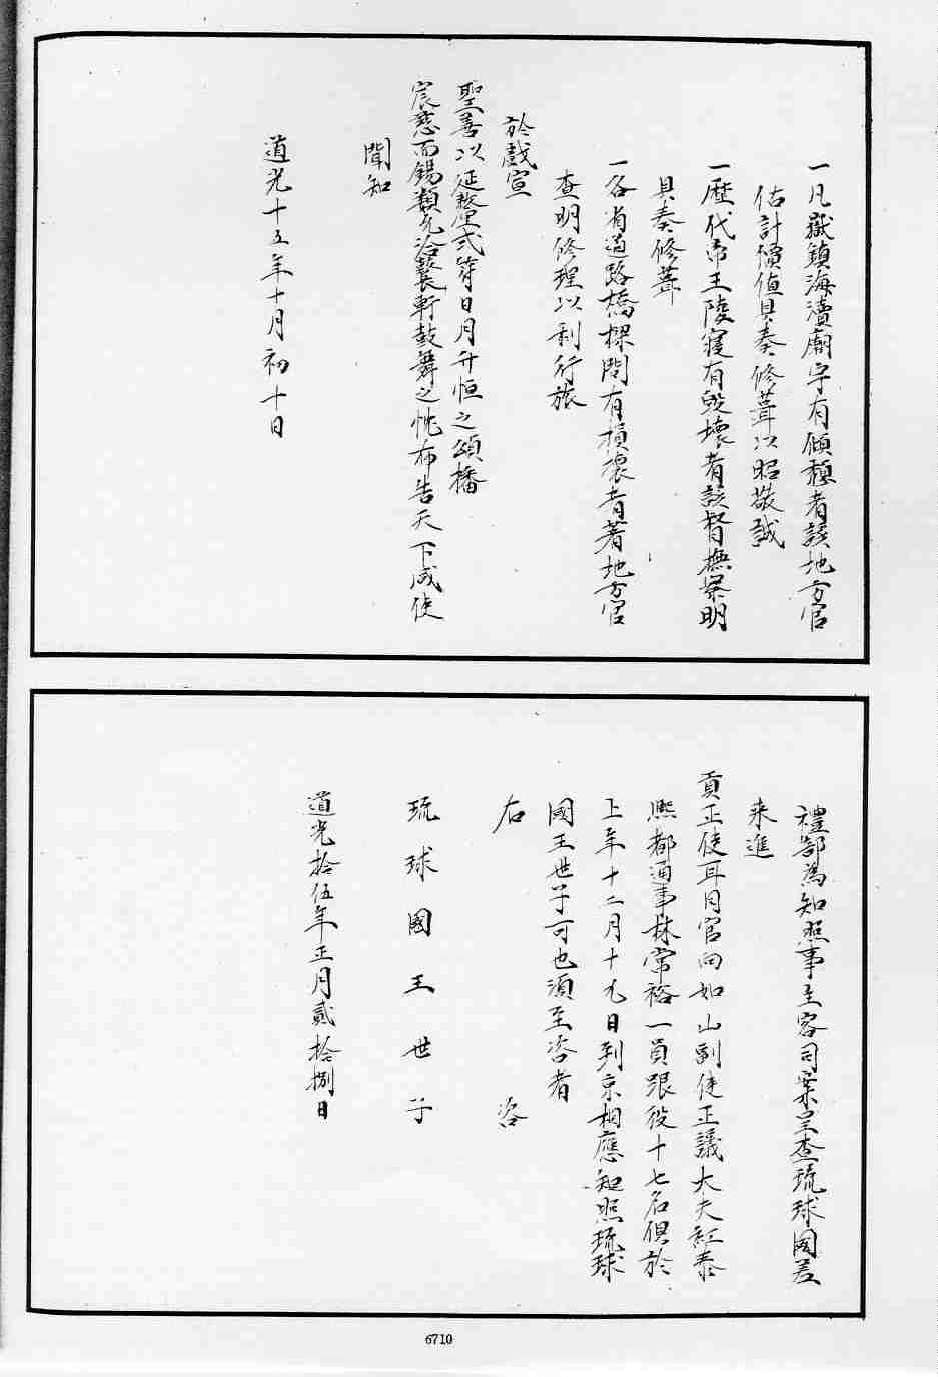 一凡嶽鎮海瀆廟宇有傾頹者該地方官
估計價值具奏修葺以昭敬誠
一歷代帝王陵寢有毀壞者該督撫察明
具奏修葺
一各省道路橋樑間有損壞者著地方官
查明修理以利行旅
於戲宣
聖善以延釐弍符日月升恒之頌播
宸慈而錫類允洽鼚軒鼓舞之忱布告天下咸使
聞知
道光十五年十月初十日
禮部為知照事主客司案呈查琉球國差
来進
貢正使耳目官向如山副使正議大夫紅泰
熙都通事林常裕一員跟役十七名俱於
上年十二月十九日到京相應知照琉球
國王世子可也須至咨者
右咨
琉球國王世子
道光拾伍年正月貳拾捌日
6710